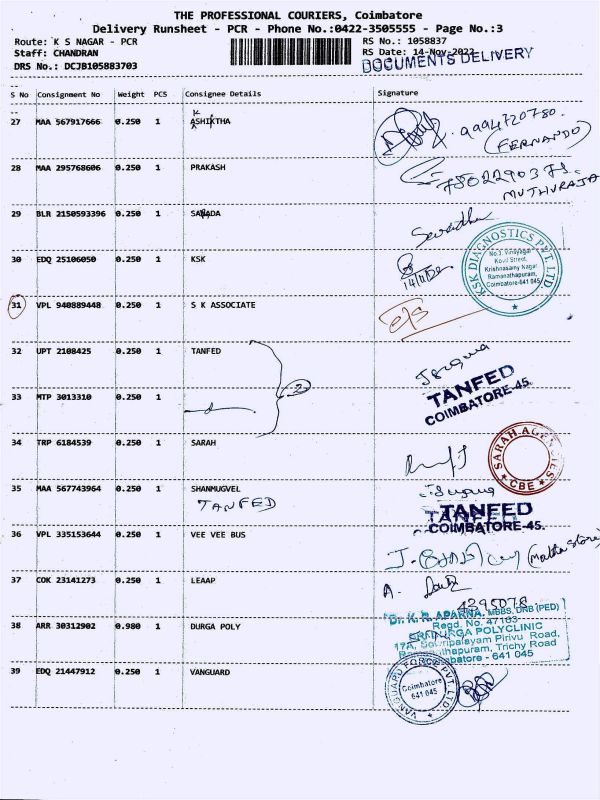 THE PROFESSIONAL COURIERS, Coimbatore
Delivery Runsheet - PCR - Phone No.:0422-3505555 - Page No.:3
Route: K S NAGAR - PCR
RS No.: 1058837
Staff: CHANDRAN
RS Date: 14-Nov-2022
DOCUMENTS DELIVERY
DRS No.: DCJB105883703
S No Consignment No Weight PCS Consignee Details Signature
27 MAA 567917666 0.250 1 ASHIKTHA
9994720780
(FERNANDO)
28 MAA 295768606 0.250 1 PRAKASH
MUTHURAJA
29 BLR 2150593396 0.250 1
30 EDQ 25106050 0.250 1 KSK
14/11/22
KSK DIAGNOSTICS PVT. LTD.
Kovil Street,
Krishnasamy Nagar
Ramanathapuram,
Coimbatore-641 045
31 VPL 940889448 0.250 1 S K ASSOCIATE
32 UPT 2108425 0.250 1 TANFED
TANFED
COIMBATORE-45.
33 MTP 3013310 0.250 1
2
34 TRP 6184539 0.250 1 SARAH
SARAH AGENCIES
CBE
35 MAA 567743964 0.250 1 SHANMUGVEL
TANFED
TANFED
COIMBATORE-45.
36 VPL 335153644 0.250 1 VEE VEE BUS
37 COK 23141273 0.250 1 LEAAP
38 ARR 30312902 0.980 1 DURGA POLY
Dr. K. R. APARNA, MBBS, DNB (PED)
Regd. No. 47163
SRI DURGA POLYCLINIC
17A, Sowripalayam Pirivu Road,
Ramanathapuram, Trichy Road
Coimbatore - 641 045
39 EDQ 21447912 0.250 1 VANGUARD
VANGUARD FORCE PVT. LTD.
Coimbatore
641 045